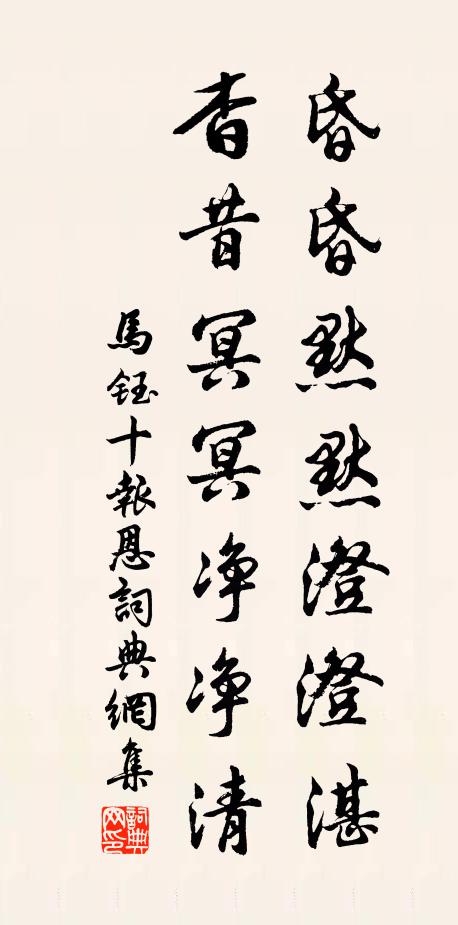 昏昏默默澄澄湛
杳昔冥冥净净清
馬鈺十報恩詞典網集
詞典网印